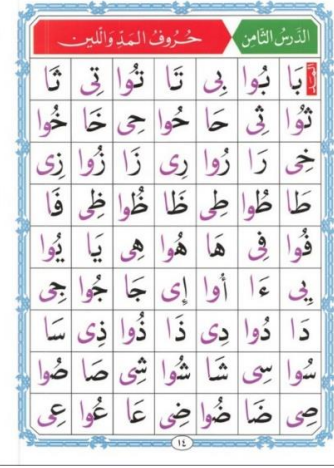 الدَّرْسُ الثَّامِنُ حُرُوفُ الْمَدِّ وَاللِّينِ
المد
بَا بُوا بِى تَا تُوا تِى ثَا
ثُوا ثِى حَا حُوا حِى خَا خُوا
خِى رَا رُوا رِى زَا زُوا زِى
طَا طُوا طِى ظَا ظُوا ظِى فَا
فُوا فِى هَا هُوا هِى يَا يُوا
يِى ءَا أُوا إِى جَا جُوا جِى
دَا دُوا دِى ذَا ذُوا ذِى سَا
سُوا سِى شَا شُوا شِى صَا صُوا
صِى ضَا ضُوا ضِى عَا عُوا عِى
١٤